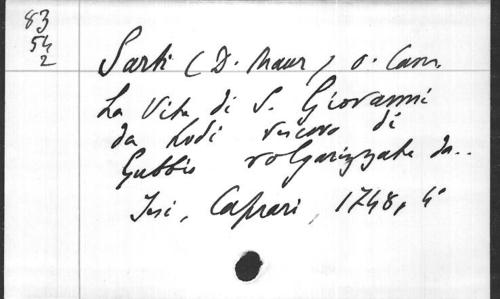 83
54
2
Sarti (D. Maur) O. Cam.
La Vita di S. Giovanni
da Lodi vescovo di
Gubbio volgarizzata da..
Jesi, Caprari, 1748, 4°